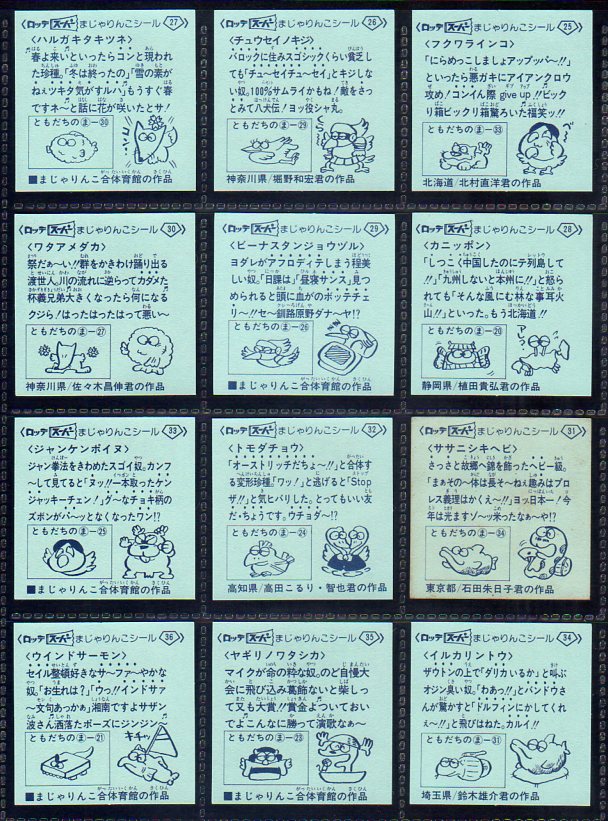 ロッテ スーパー まじゃりんこシール 27
〈ハルガキタキツネ〉
春よ来いといったらコンと現われ
た珍種。「冬は終ったの」「雪の素が
ねぇツキタ気がすルハ」もうすぐ春
ですネ〜と話に花が咲いたとサ!
ともだちの ま-30
コンコン
■まじゃりんこ合体育館の作品
ロッテ スーパー まじゃりんこシール 26
〈チュウセイノキジ〉
バロックに住みスゴシックくらい貧乏し
ても「チューセイチューセイ」とキジしな
い奴。100%サムライかもね!敵をさっ
とみて八犬伝!ヨッ役ジャ丸。
ともだちの ま-29
神奈川県/堀野和宏君の作品
ロッテ スーパー まじゃりんこシール 25
〈フクワラインコ〉
「にらめっこしましょアップッパ〜!!」
といったら悪ガキにアイアンクロウ
攻め!コンイん際 give up!!ビック
り箱ビックリ箱驚ろいた福笑ッ!!
ともだちの ま-33
北海道/北村直洋君の作品
ロッテ スーパー まじゃりんこシール 30
〈ワタアメダカ〉
祭だぁ〜い!!群をかきわけ踊り出る
渡世人。川の流れに逆らってカダメた
杯義兄弟大きくなったら何になる
クジら/!はったはったはって悪い〜
ともだちの ま-27
神奈川県/佐々木昌伸君の作品
ロッテ スーパー まじゃりんこシール 29
〈ビーナスタンジョウヅル〉
ヨダレがアフロディテしまう程美
しい奴。「日課は」「昼寝サンス」見つ
められると頭に血がのボッテチェ
リ〜/!セ〜釧路原野ダナ〜ヤ!?
ともだちの ま-26
■まじゃりんこ合体育館の作品
ロッテ スーパー まじゃりんこシール 28
〈カニッポン〉
「しつこく中国したのにテ列島して
!!」「九州しないと本州に!!」と怒ら
れても「そんな風にむ林な事耳火
山!!」といった。もう北海道!!
ともだちの ま-20
静岡県/植田貴弘君の作品
ロッテ スーパー まじゃりんこシール 33
〈ジャンケンポイヌ〉
ジャン拳法をきわめたスゴイ奴。カンワ
〜して見てると「ヌッ!!一本取ったケン
ジャッキーチェン!」グ〜なチョキ柄の
ズボンがパ〜ッとなくなったワン!?
ともだちの ま-25
■まじゃりんこ合体育館の作品
ロッテ スーパー まじゃりんこシール 32
〈トモダチョウ〉
「オーストリッチだちょ〜!!」と合体す
る変形珍種。「ワッ!」と逃げると「Stop
ザ!!」と気とバリした。とってもいい友
だ・ちょうです。ウチョダ〜!?
ともだちの ま-24
高知県/高田こるり・智也君の作品
ロッテ スーパー まじゃりんこシール 31
〈ササニシキヘビ〉
さっさと故郷へ錦を飾ったヘビー級。
「まぁその〜体は長そ〜ねぇ趣みはプロ
レス義理はかくぇ〜!!」ヨッ日本一!今
年は光ますゾ〜ッ米ったなぁ〜や!?
ともだちの ま-34
東京都/石田朱日子君の作品
ロッテ スーパー まじゃりんこシール 36
〈ウインドサーモン〉
セイル整頓好きなサ〜ファ〜やかな
奴。「お生れは?」「ウッ!!インドサァ
〜文句あっかぁ」湘南ですよサザン
波さん洒落たポーズにジンジン〜
ともだちの ま-21
キキャッ
■まじゃりんこ合体育館の作品
ロッテ スーパー まじゃりんこシール 35
〈ヤギリノワタシカ〉
マイクが命の粋な奴。のど自慢大
会に飛び込み葛飾ないと柴しっ
て又も大賞!!賞金よついておい
でよこんなに勝って演歌なぁ〜
ともだちの ま-23
■まじゃりんこ合体育館の作品
ロッテ スーパー まじゃりんこシール 34
〈イルカリントウ〉
ザウトンの上で「ダリカいるか」と叫ぶ
オジン臭い奴。「わあっ!!」とバンドウさ
んが驚かすと「ドルフィンにかしてくれ
ぇ〜!!」と飛びはねた。カルイ!!
ともだちの ま-31
埼玉県/鈴木雄介君の作品